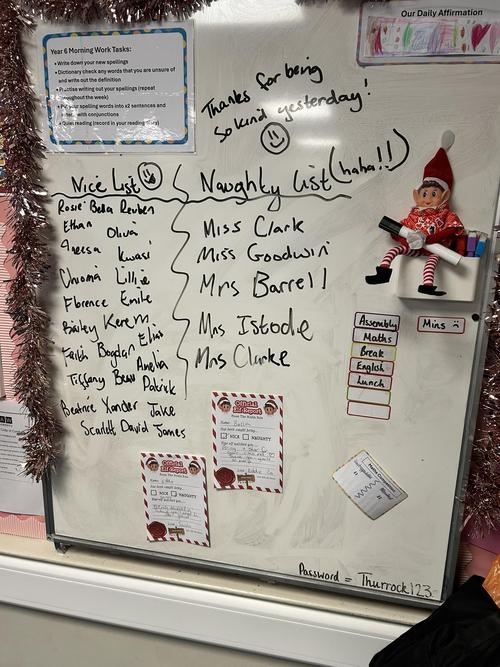 Our Daily Affirmation
Year 6 Morning Work Tasks:
• Write down your new spellings
• Dictionary check any words that you are unsure of
and write out the definition
• Practise writing out your spellings (repeat
throughout the week)
• Put your spelling words into x2 sentences and
with conjunctions
• Quiet reading (record in your reading diary)
Thanks for being
so kind yesterday!
Nice List
Rosie Bella Reuben
Ethan Olivia
Kwasi
Chioma Lillie
Florence Emile
Bailey Kerem
Elias
Faith Bogdan
Amelia
Tiffany Beau Patrick
Beatrice Xander Jake
Scarlett David James
Naughty list (haha!!)
Miss Clark
Miss Goodwin
Mrs Barrell
Mrs Istode
Mrs Clarke
Assembly
Maths
Break
English
Lunch
Mins
Official
Elf Report
From The North Pole
Name:
NICE NAUGHTY
Official
Elf Report
From The North Pole
Name:
NICE NAUGHTY
Password = Thurrock123